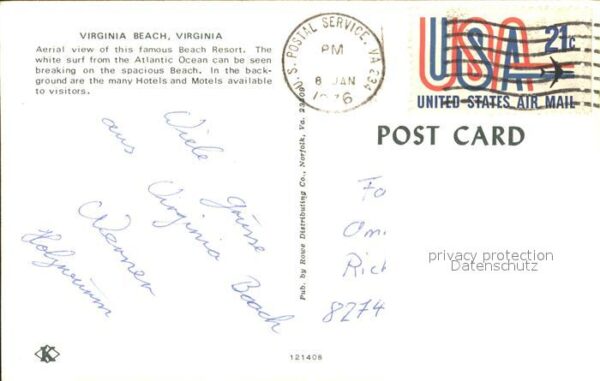 VIRGINIA BEACH, VIRGINIA
Aerial view of this famous Beach Resort. The
white surf from the Atlantic Ocean can be seen
breaking on the spacious Beach. In the back-
ground are the many Hotels and Motels available
to visitors.
U. S. POSTAL SERVICE, VA 234
PM
8 JAN
1976
USA 21c
UNITED STATES AIR MAIL
POST CARD
Viele Grüsse
aus Virginia Beach
Werner
Pub. by Rowe Distributing Co., Norfolk, Va. 23509
Fa
Rich
8274
privacy protection
Datenschutz
K
121408